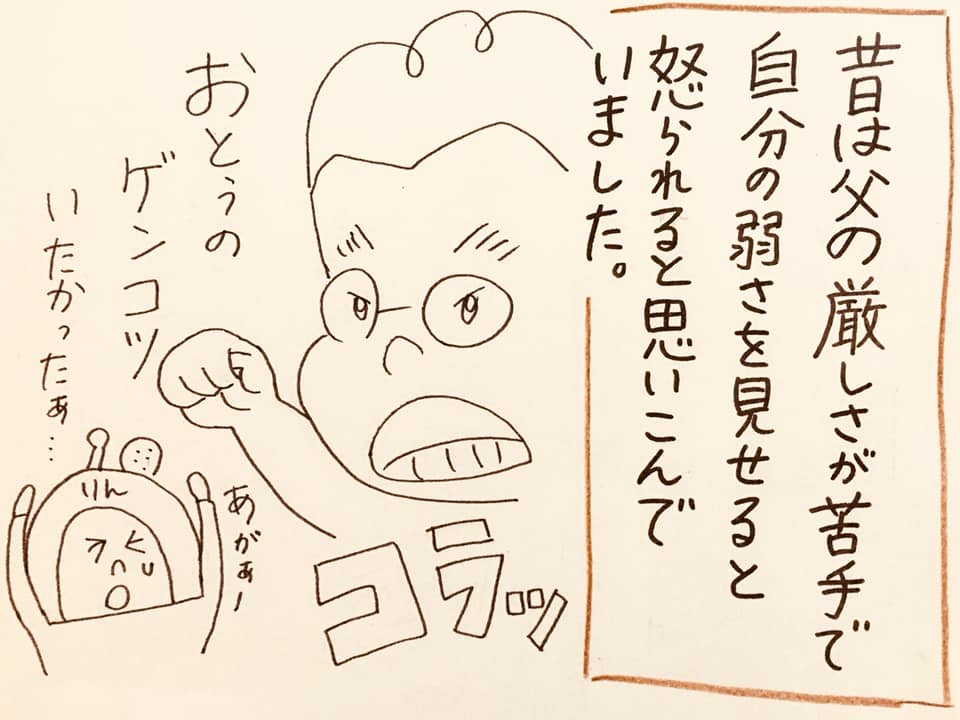 昔は父の厳しさが苦手で
自分の弱さを見せると
怒られると思いこんで
いました。
おとぅの
ゲンコツ
いたかったぁ…
コラッ
あがぁー
りん